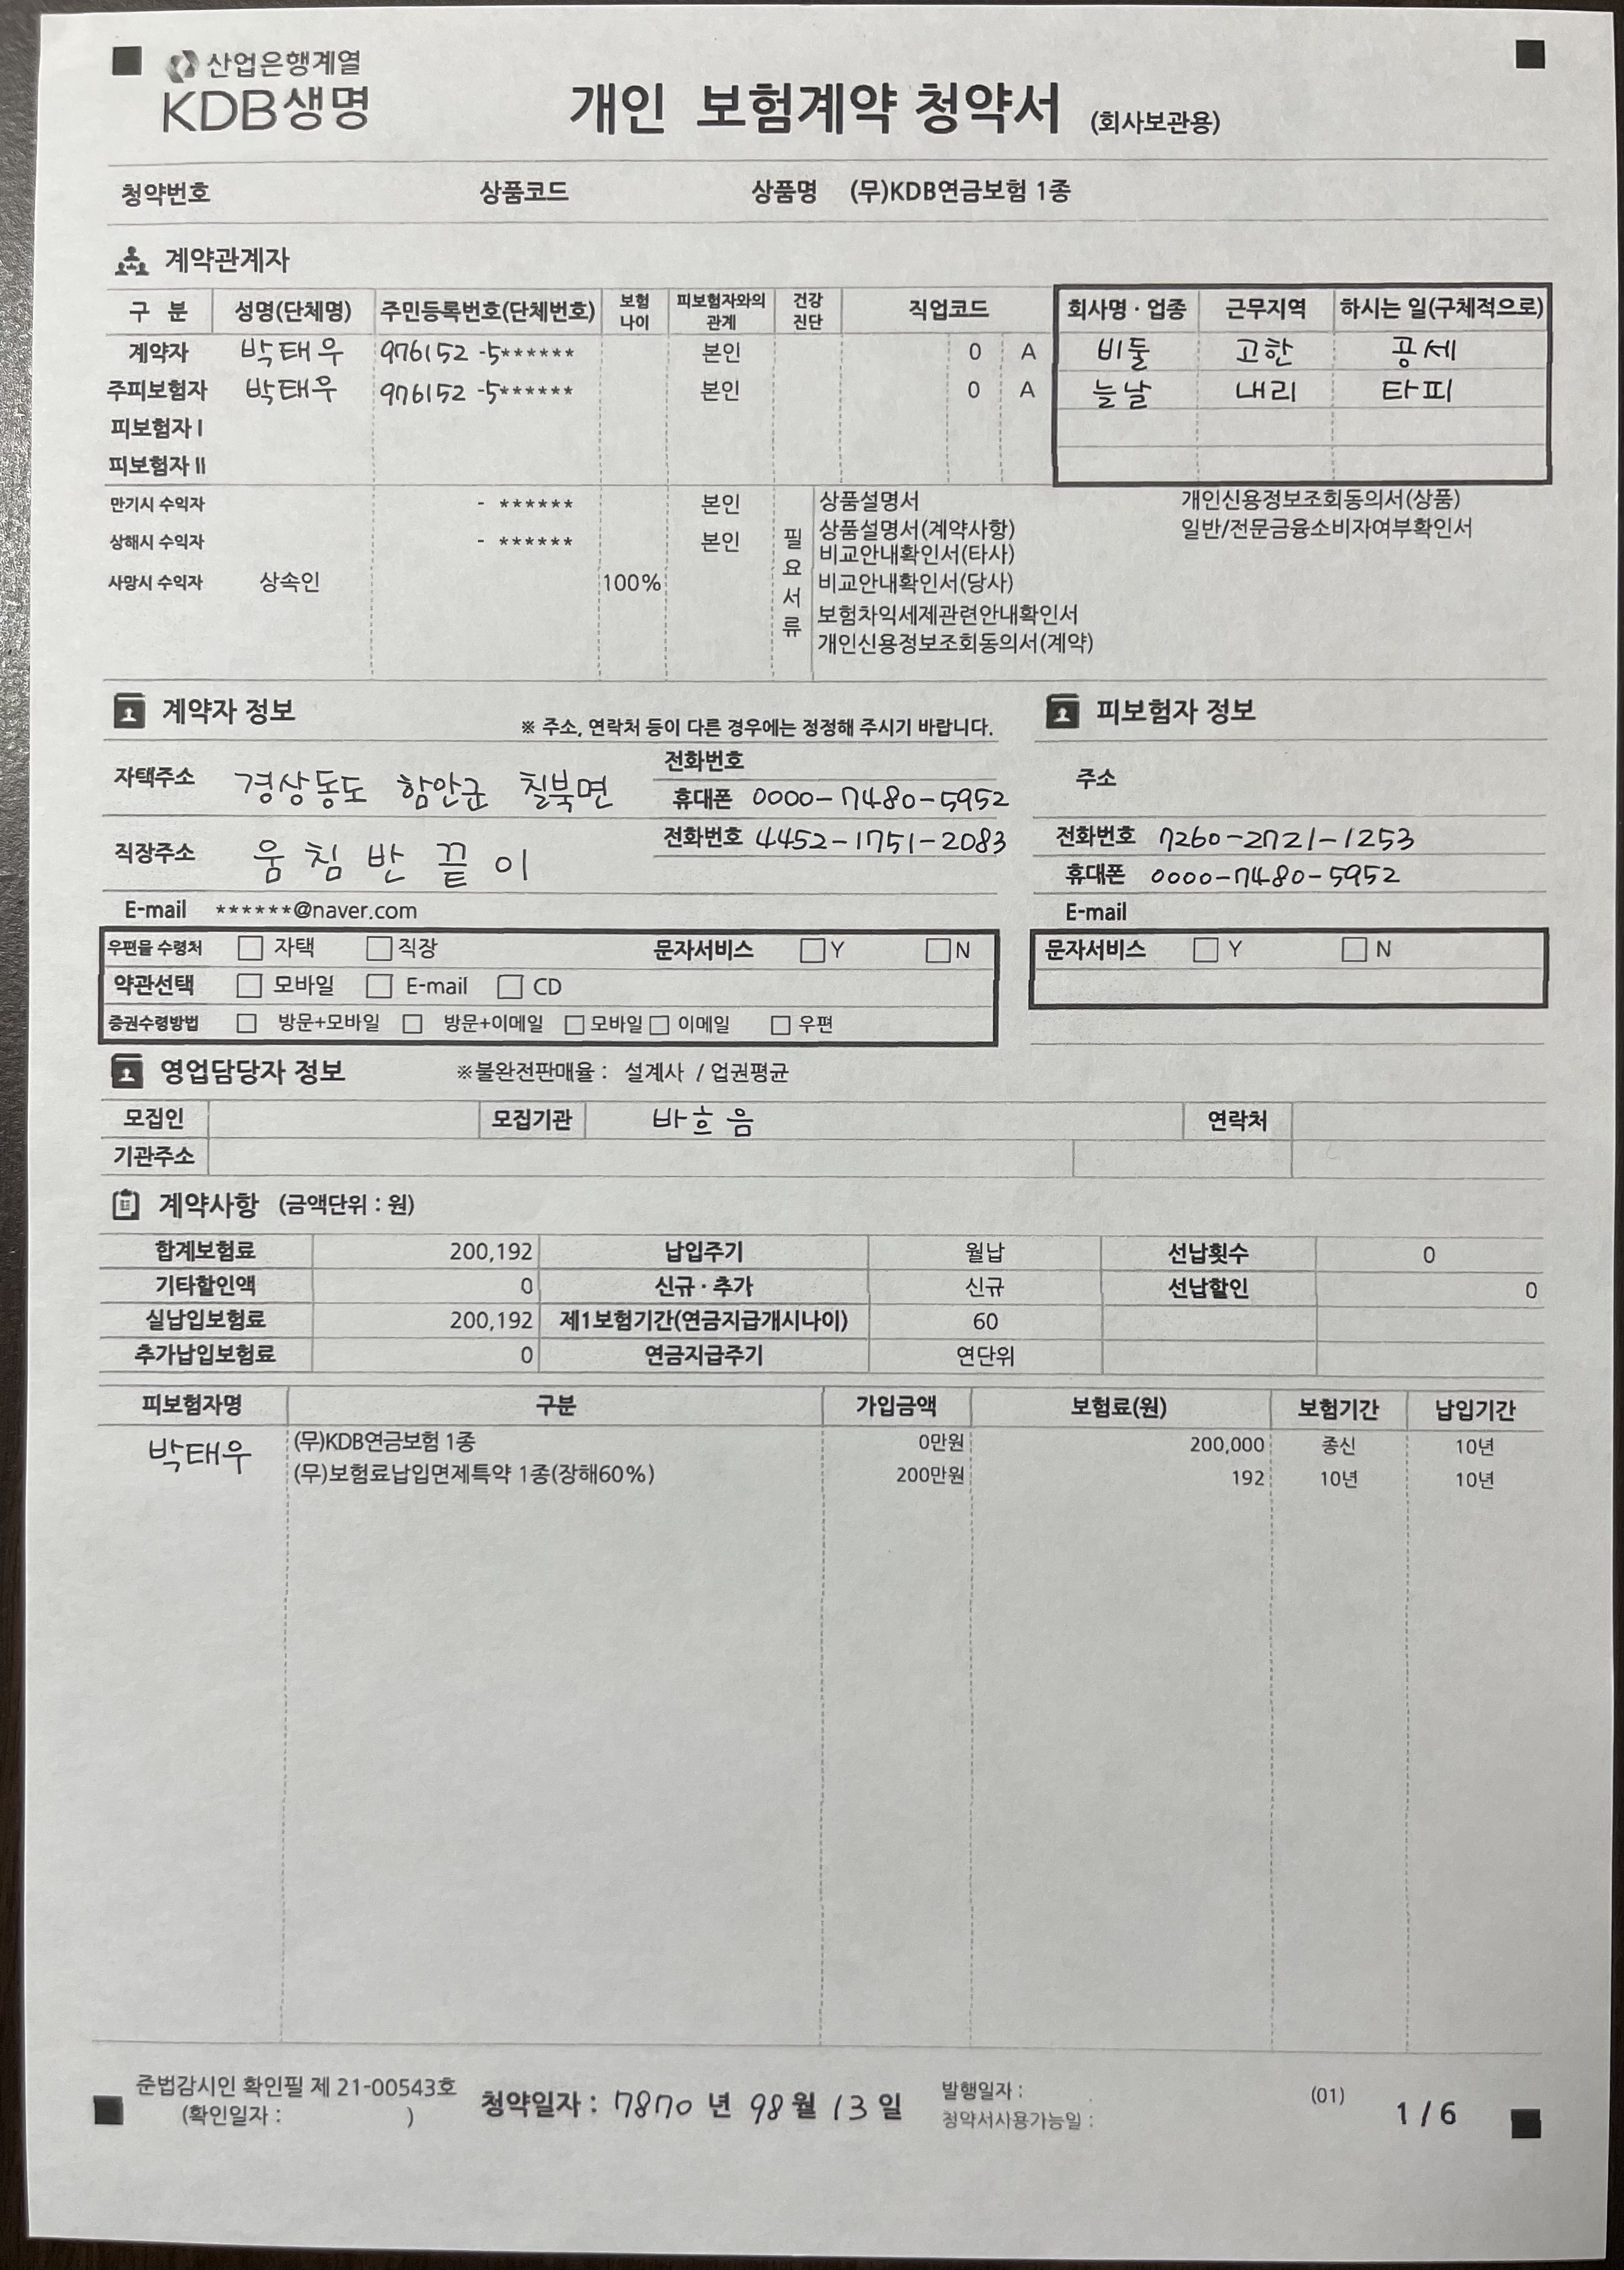 산업은행계열
KDB생명
개인 보험계약 청약서 (회사보관용)
청약번호 상품코드 상품명 (무)KDB연금보험 1종
계약관계자
구 분 성명(단체명) 주민등록번호(단체번호) 보험나이 피보험자와의 관계 건강진단 직업코드 회사명·업종 근무지역 하시는 일(구체적으로)
계약자 박태우 976152 -5****** 본인 0 A 비둘 고한 공세
주피보험자 박태우 976152 -5****** 본인 0 A 늘날 내리 타피
피보험자 I
피보험자 II
만기시 수익자 - ****** 본인
상해시 수익자 - ****** 본인
사망시 수익자 상속인 100%
필요서류
상품설명서 개인신용정보조회동의서(상품)
상품설명서(계약사항) 일반/전문금융소비자여부확인서
비교안내확인서(타사)
비교안내확인서(당사)
보험차익세제관련안내확인서
개인신용정보조회동의서(계약)
계약자 정보 ※ 주소, 연락처 등이 다른 경우에는 정정해 주시기 바랍니다.
자택주소 경상동도 함안군 칠북면 전화번호
휴대폰 0000-7480-5952
직장주소 움침반끝이 전화번호 4452-1751-2083
E-mail ******@naver.com
우편물 수령처 □ 자택 □ 직장 문자서비스 □ Y □ N
약관선택 □ 모바일 □ E-mail □ CD
증권수령방법 □ 방문+모바일 □ 방문+이메일 □ 모바일 □ 이메일 □ 우편
피보험자 정보
주소
전화번호 7260-2721-1253
휴대폰 0000-7480-5952
E-mail
문자서비스 □ Y □ N
영업담당자 정보 ※불완전판매율 : 설계사 / 업권평균
모집인 모집기관 바흐음 연락처
기관주소
계약사항 (금액단위 : 원)
합계보험료 200,192 납입주기 월납 선납횟수 0
기타할인액 0 신규·추가 신규 선납할인 0
실납입보험료 200,192 제1보험기간(연금지급개시나이) 60
추가납입보험료 0 연금지급주기 연단위
피보험자명 구분 가입금액 보험료(원) 보험기간 납입기간
박태우 (무)KDB연금보험 1종 0만원 200,000 종신 10년
(무)보험료납입면제특약 1종(장해60%) 200만원 192 10년 10년
준법감시인 확인필 제 21-00543호
(확인일자 : )
청약일자 : 7870 년 98 월 13 일
발행일자 :
청약서사용가능일 :
(01)
1 / 6